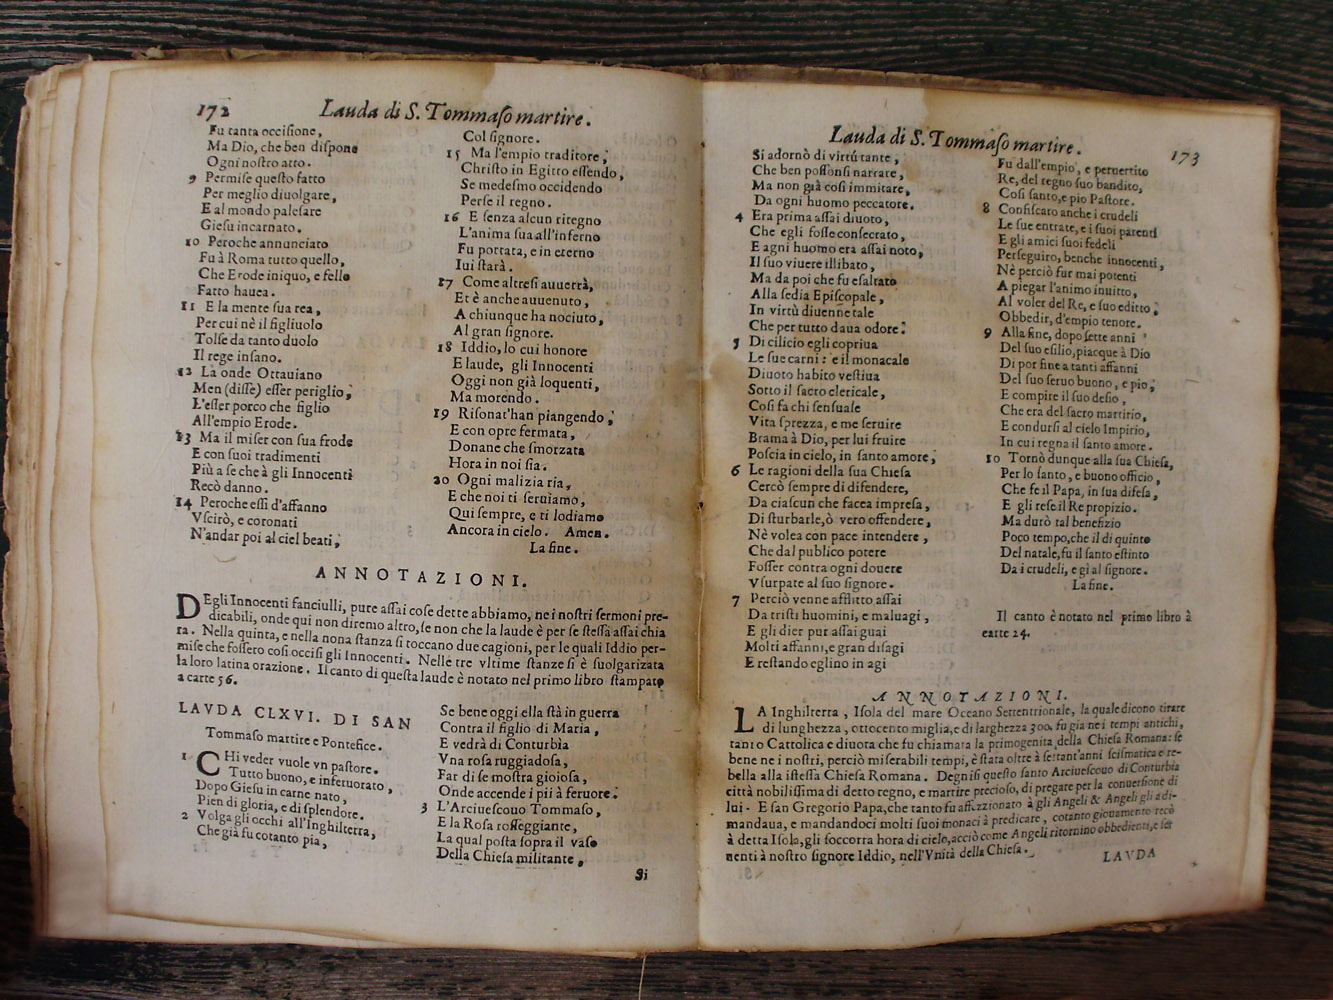 172 Lauda di S. Tommaſo martire.
Fu tanta occiſione,
Ma Dio, che ben diſpone
Ogni noſtro atto.
9 Permiſe queſto fatto
Per meglio diuolgare,
E al mondo paleſare
Gieſu incarnato.
10 Peroche annunciato
Fu à Roma tutto quello,
Che Erode iniquo, e fello
Fatto hauea.
11 E la mente ſua rea,
Per cui nè il figliuolo
Tolſe da tanto duolo
Il rege inſano.
12 La onde Ottauiano
Men (diſſe) eſſer periglio,
L'eſſer porco che figlio
All'empio Erode.
13 Ma il miſer con ſua frode
E con ſuoi tradimenti
Più a ſe che à gli Innocenti
Recò danno.
14 Peroche eſſi d'affanno
Vſcirò, e coronati
N'andar poi al ciel beati,
Col ſignore.
15 Ma l'empio traditore,
Chriſto in Egitto eſſendo,
Se medeſmo occidendo
Perſe il regno.
16 E ſenza alcun ritegno
L'anima ſua all'inferno
Fu portata, e in eterno
Iui ſtarà.
17 Come altreſi auuerrà,
Et è anche auuenuto,
A chiunque ha nociuto,
Al gran ſignore.
18 Iddio, lo cui honore
E laude, gli Innocenti
Oggi non già loquenti,
Ma morendo.
19 Riſonat'han piangendo,
E con opre fermata,
Donane che ſmorzata
Hora in noi ſia.
20 Ogni malizia ria,
E che noi ti ſeruiamo,
Qui ſempre, e ti lodiamo
Ancora in cielo. Amen.
La fine.
ANNOTAZIONI.
DEgli Innocenti fanciulli, pure aſſai coſe dette abbiamo, ne i noſtri ſermoni pre-
dicabili, onde qui non diremo altro, ſe non che la laude è per ſe ſteſſa aſſai chia
ra. Nella quinta, e nella nona ſtanza ſi toccano due cagioni, per le quali Iddio per-
miſe che foſſero coſi occiſi gli Innocenti. Nelle tre vltime ſtanze ſi è ſuolgarizata
la loro latina orazione. Il canto di queſta laude è notato nel primo libro ſtampato
a carte 56.
LAVDA CLXVI. DI SAN
Tommaſo martire e Pontefice.
1 CHi veder vuole vn paſtore.
Tutto buono, e inferuorato,
Dopo Gieſu in carne nato,
Pien di gloria, e di ſplendore.
2 Volga gli occhi all'Inghilterra,
Che già fu cotanto pia,
Se bene oggi ella ſtà in guerra
Contra il figlio di Maria,
E vedrà di Conturbia
Vna roſa ruggiadoſa,
Far di ſe moſtra gioioſa,
Onde accende i pii à feruore.
3 L'Arciueſcouo Tommaſo,
E la Roſa roſſeggiante,
La qual poſta ſopra il vaſo
Della Chieſa militante,
Si
Lauda di S. Tommaſo martire. 173
Si adornò di virtú tante,
Che ben poſſonſi narrare,
Ma non già coſi immitare,
Da ogni huomo peccatore.
4 Era prima aſſai diuoto,
Che egli foſſe conſecrato,
E agni huomo era aſſai noto,
Il ſuo viuere illibato,
Ma da poi che fu eſaltato
Alla ſedia Epiſcopale,
In virtù diuenne tale
Che per tutto daua odore.
5 Di cilicio egli copriua
Le ſue carni: e il monacale
Diuoto habito veſtiua
Sotto il ſacro clericale,
Coſi fa chi ſenſuale
Vita ſprezza, e me ſeruire
Brama à Dio, per lui fruire
Poſcia in cielo, in ſanto amore,
6 Le ragioni della ſua Chieſa
Cercò ſempre di difendere,
Da ciaſcun che facea impreſa,
Di ſturbarle, ò vero offendere,
Nè volea con pace intendere,
Che dal publico potere
Foſſer contra ogni douere
Vſurpate al ſuo ſignore.
7 Perciò venne afflitto aſſai
Da triſti huomini, e maluagi,
E gli dier pur aſſai guai
Molti affanni, e gran diſagi
E reſtando eglino in agi
Fu dall'empio, e peruertito
Re, del regno ſuo bandito,
Coſi ſanto, e pio Paſtore.
8 Confiſcaro anche i crudeli
Le ſue entrate, e i ſuoi parenti
E gli amici ſuoi fedeli
Perſeguiro, benche innocenti,
Nè perciò fur mai potenti
A piegar l'animo inuitto,
Al voler del Re, e ſuo editto,
Obbedir, d'empio tenore.
9 Alla fine, dopo ſette anni
Del ſuo eſilio, piacque à Dio
Di por fine a tanti affanni
Del ſuo ſeruo buono, e pio,
E compire il ſuo deſio,
Che era del ſacro martirio,
E condurſi al cielo Impirio,
In cui regna il ſanto amore.
10 Tornò dunque alla ſua Chieſa,
Per lo ſanto, e buono officio,
Che fe il Papa, in ſua difeſa,
E gli reſe il Re propizio.
Ma durò tal benefizio
Poco tempo, che il di quinto
Del natale, fu il ſanto eſtinto
Da i crudeli, e gì al ſignore.
La fine.
Il canto è notato nel primo libro à
carte 24.
ANNOTAZIONI.
LA Inghilterra, Iſola del mare Oceano Settentrionale, la quale dicono tirare
di lunghezza, ottocento miglia, e di larghezza 300. fu gia ne i tempi antichi,
tanto Cattolica e diuota che fu chiamata la primogenita della Chieſa Romana: ſe
bene ne i noſtri, perciò miſerabili tempi, è ſtata oltre à ſettant'anni ſciſmatica e re-
bella alla iſteſſa Chieſa Romana. Degniſi queſto ſanto Arciueſcouo di Conturbia
città nobiliſſima di detto regno, e martire precioſo, di pregare per la conuerſione di
lui. E ſan Gregorio Papa, che tanto fu affezzionato à gli Angeli & Angeli gli adi-
mandaua, e mandandoci molti ſuoi monaci à predicare, cotanto giouamento recò
à detta Iſola, gli ſoccorra hora di cielo, acciò come Angeli ritornino obbedienti, e ſer
uenti à noſtro ſignore Iddio, nell'Vnità della Chieſa.
LAVDA